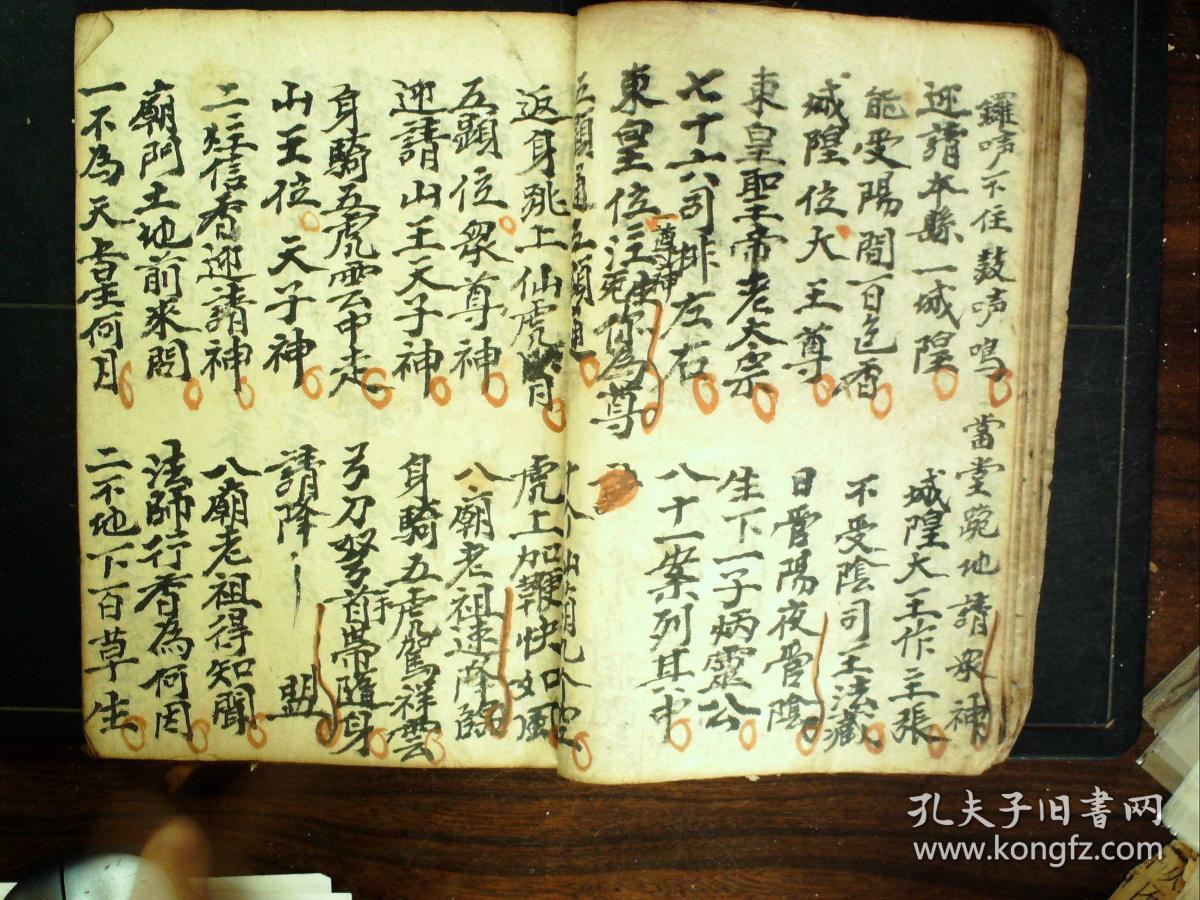 鑼唣不住鼓唣鳴 當堂跪地請衆神
迎請本縣一城隍 城隍大王作主張
能受陽間百色香 不受陰司王法藏
城隍位大王尊 日管陽夜管陰
東皇聖帝老太宗 生下一子炳靈公
七十六司排左右 八十一案列其中
東皇位 一尊神 為尊
五顯 五顯
返身跳上仙虎 虎上加鞭快如風
五顕位衆尊神 八廟老祖速降臨
迎請山王天子神 身騎五虎駕祥雲
身騎五虎雲中走 弓刀弩首帶隨身
手
山王位 天子神 請降 盟
二炷信香迎請神 八廟老祖得知聞
廟門土地前來問 法師行香為何因
一不為天 何月 二不地下百草生
孔夫子旧書网
www.kongfz.com